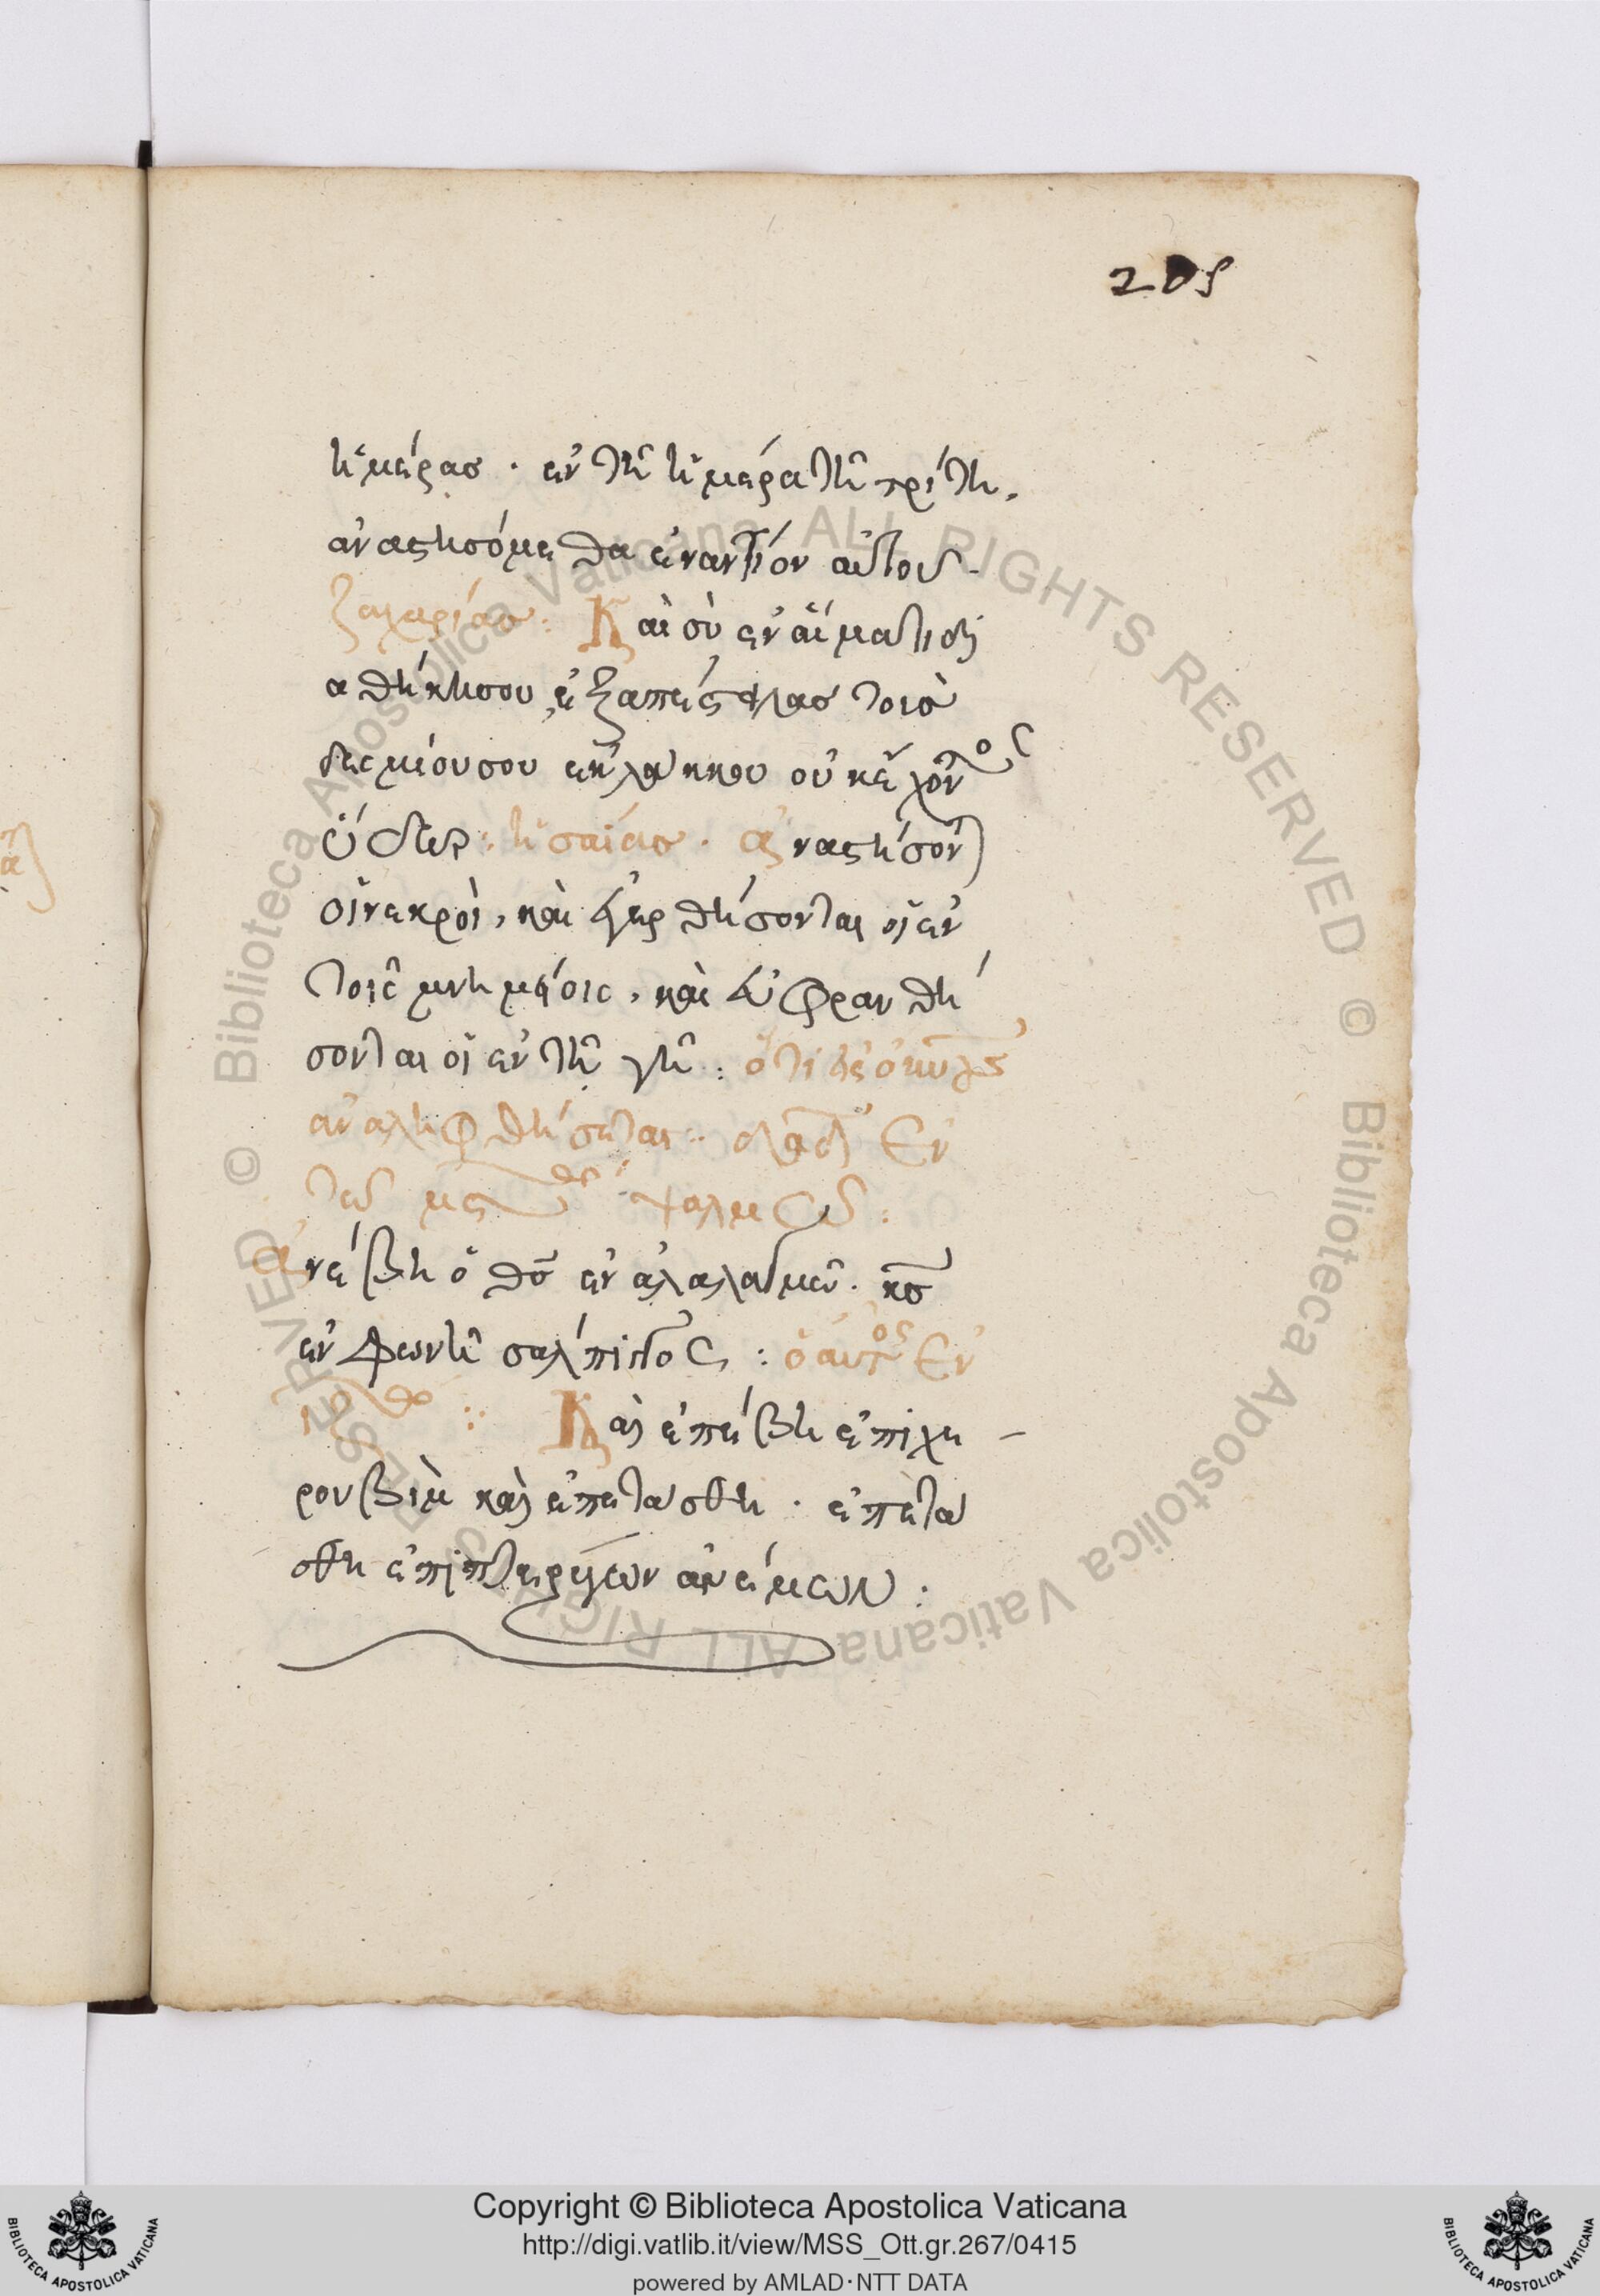 205
ἡμέρας · ἐν τῆ ἡμέρα τῆ τρίτη,
ἀναστησόμεθα ἐναντίον αὐτοῦ.
ζαχαρίας : Καὶ σὺ ἐν αἵματι δι
αθήκης σου, ἐξαπέστειλας τοὺς
δεσμίους σου ἐκ λάκκου οὐκ ἔχοντος
ὕδωρ : ἡσαΐας · ἀναστήσονται
οἱ νεκροὶ, καὶ ἐγερθήσονται οἱ ἐν
τοῖς μνημείοις, καὶ εὐφρανθή
σονται οἱ ἐν τῆ γῆ : ὅτι ὁ
ἀναληφθήσεται : δαδ Ἐν
τῶ μς ψαλμῶ :
Ἀνέβη ὁ θς ἐν ἀλαλαγμῶ. κς
ἐν φωνῆ σάλπιγγος : ὁ αὐτος Ἐν
ιζ : Καὶ ἐπέβη ἐπὶ χε
ρουβὶμ καὶ ἐπετάσθη · ἐπετά
σθη ἐπὶ πτερύγων ἀνέμων :
© Biblioteca Apostolica Vaticana ALL RIGHTS RESERVED © Biblioteca Apostolica Vaticana ALL RIGHTS RESERVED
Copyright © Biblioteca Apostolica Vaticana
http://digi.vatlib.it/view/MSS_Ott.gr.267/0415
powered by AMLAD·NTT DATA
BIBLIOTECA APOSTOLICA VATICANA
BIBLIOTECA APOSTOLICA VATICANA